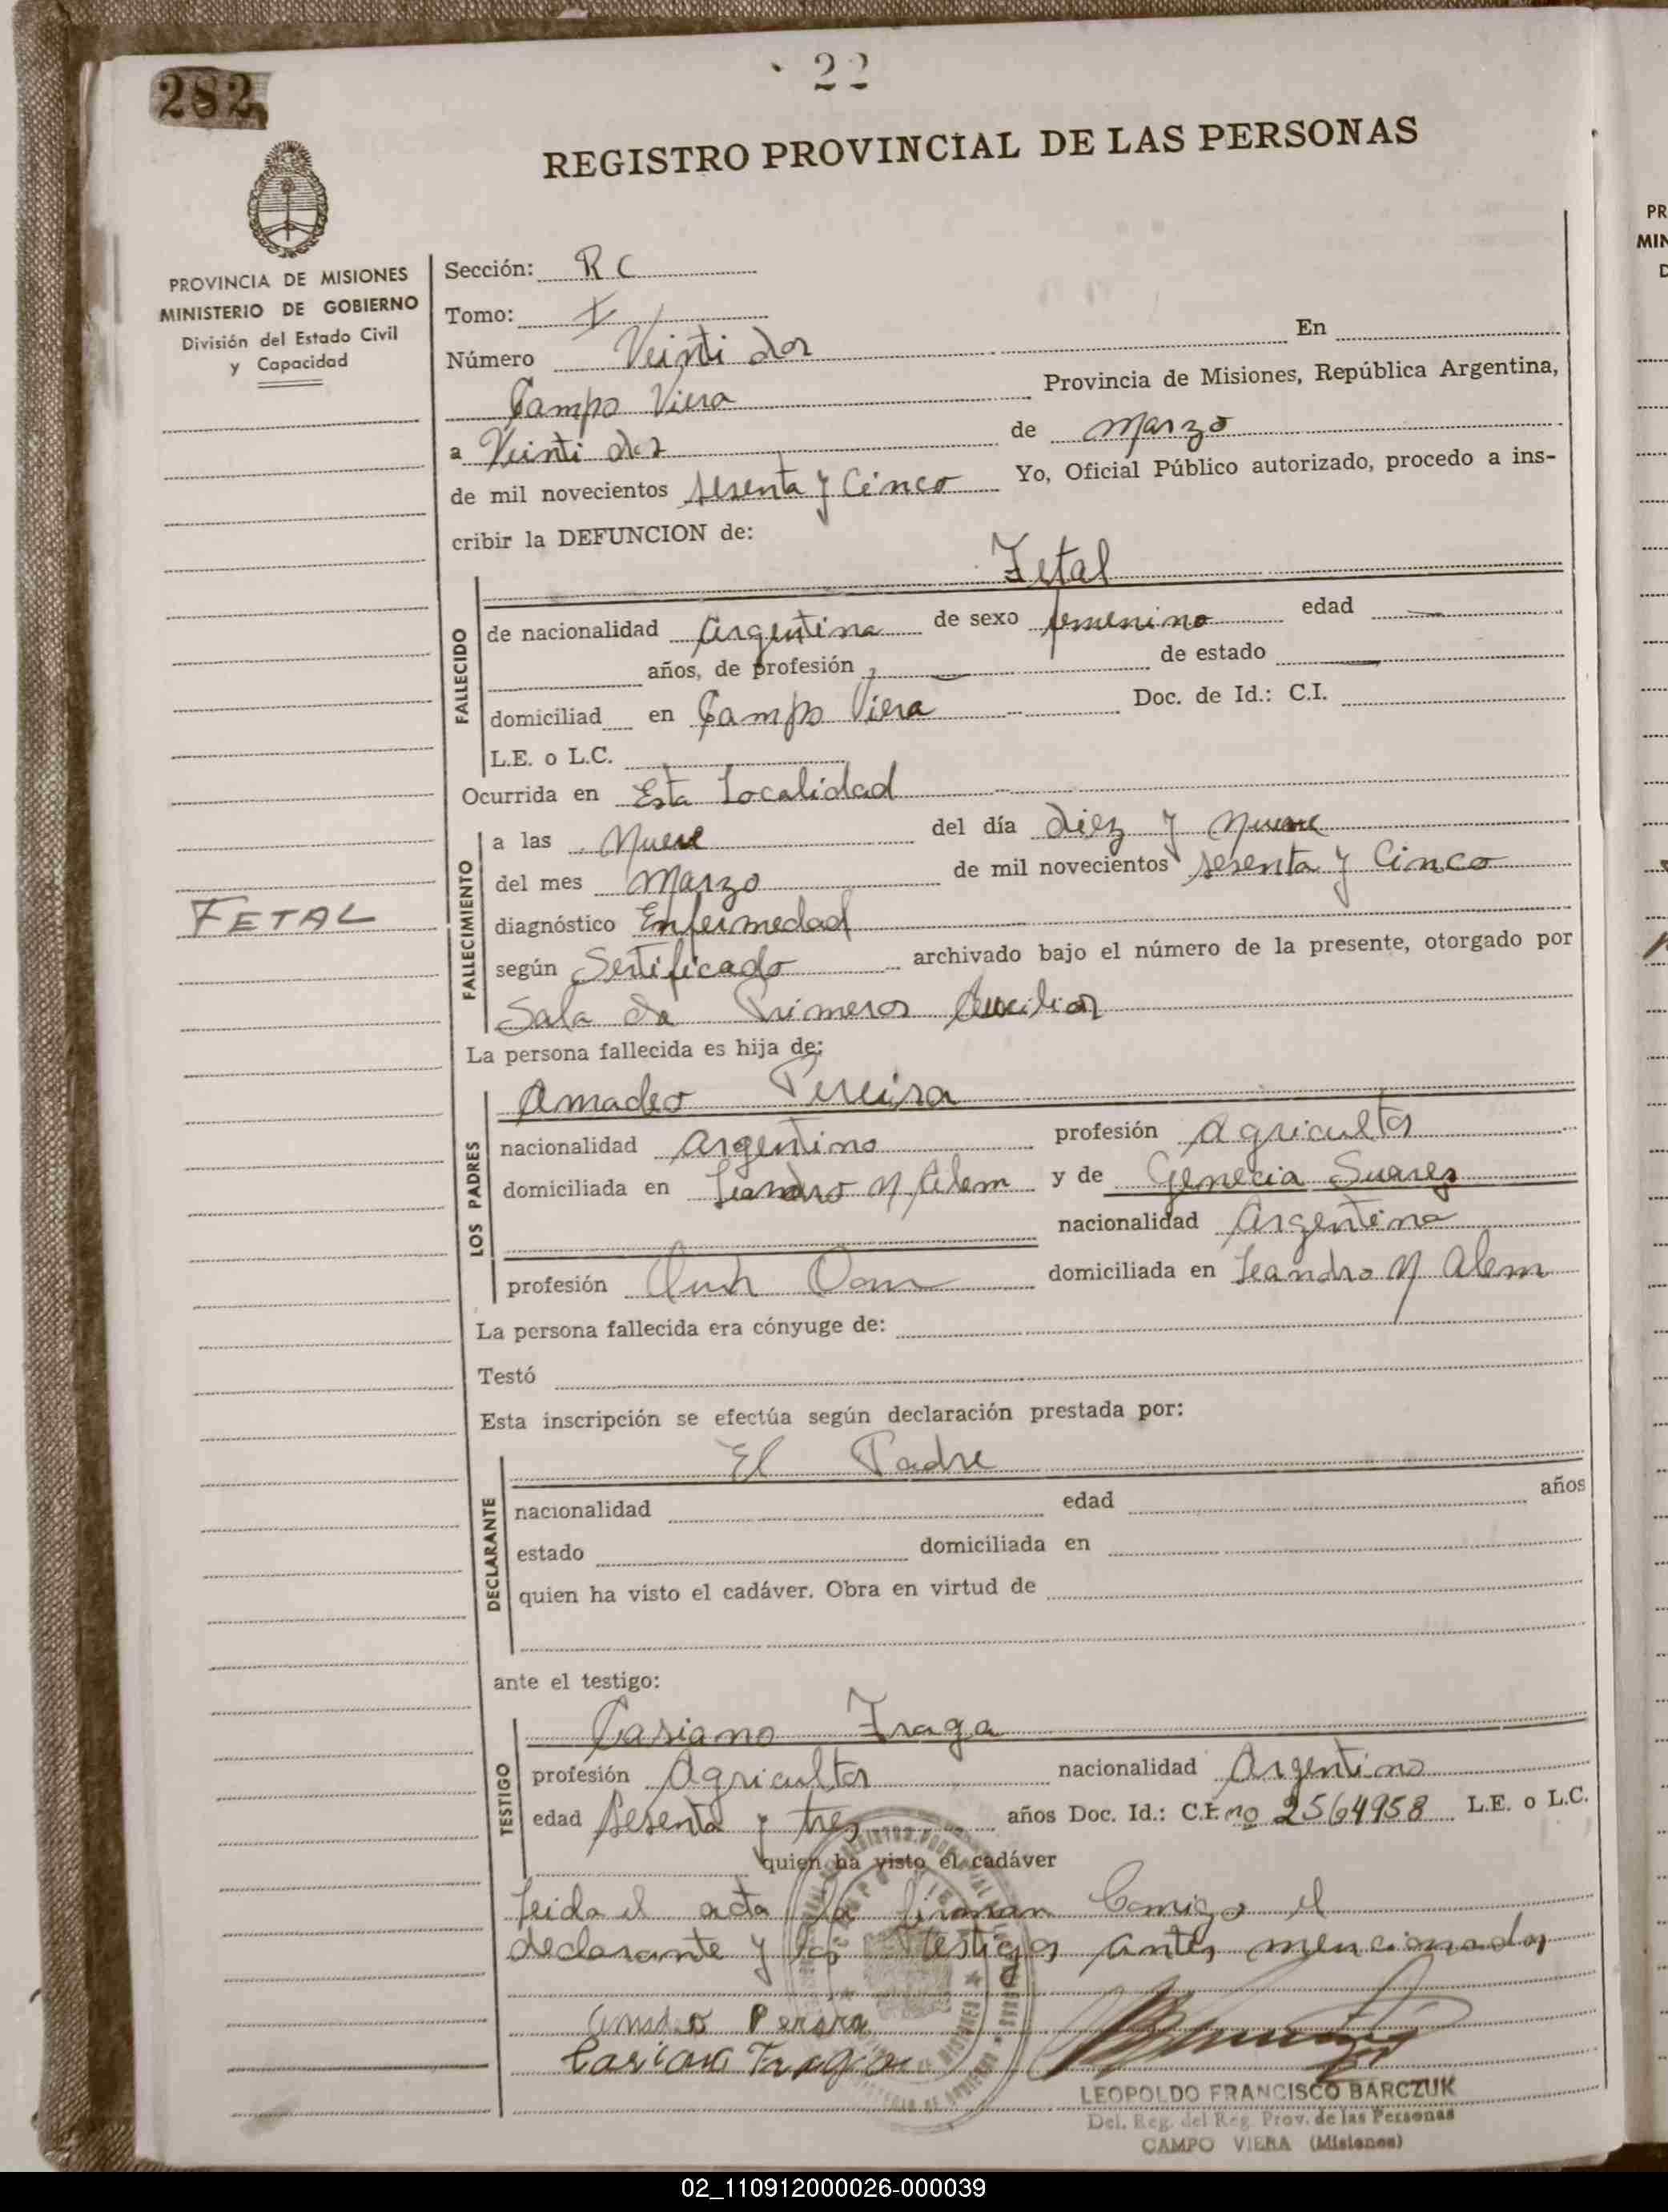 282
22
REGISTRO PROVINCIAL DE LAS PERSONAS
PROVINCIA DE MISIONES
MINISTERIO DE GOBIERNO
División del Estado Civil
y Capacidad
Sección: R C
Tomo: I
Número Veinti dos En
Campo Viera Provincia de Misiones, República Argentina,
a Veinti dos de Marzo
de mil novecientos sesenta y Cinco Yo, Oficial Público autorizado, procedo a ins-
cribir la DEFUNCION de:
Fetal
FALLECIDO
de nacionalidad Argentina de sexo femenino edad —
años, de profesión — de estado —
domiciliad en Campo Viera Doc. de Id.: C.I.
L.E. o L.C.
Ocurrida en Esta Localidad
FALLECIMIENTO
a las Nueve del día diez y Nueve
del mes Marzo de mil novecientos sesenta y Cinco
FETAL
diagnóstico Enfermedad
según Sertificado archivado bajo el número de la presente, otorgado por
Sala da Primeros Auxilios
La persona fallecida es hija de:
LOS PADRES
Amadeo Pereira
nacionalidad Argentino profesión Agricultor
domiciliada en Leandro N Alem y de Genecia Suarez
nacionalidad Argentina
profesión domiciliada en Leandro N Alem
La persona fallecida era cónyuge de:
Testó
Esta inscripción se efectúa según declaración prestada por:
DECLARANTE
El Padre
nacionalidad edad años
estado domiciliada en
quien ha visto el cadáver. Obra en virtud de
ante el testigo:
TESTIGO
Casiano Fraga
profesión Agricultor nacionalidad Argentino
edad Sesenta y tres años Doc. Id.: C.I. no 2564958 L.E. o L.C.
quien ha visto el cadáver
Leida el acta la firman Comigo el
declarante y los testigos antes mencionados
Amadeo Perera
Casiano Fraga
LEOPOLDO FRANCISCO BARCZUK
Del. Reg. del Reg. Prov. de las Personas
CAMPO VIERA (Misiones)
PR
MIN
D
02_110912000026-000039